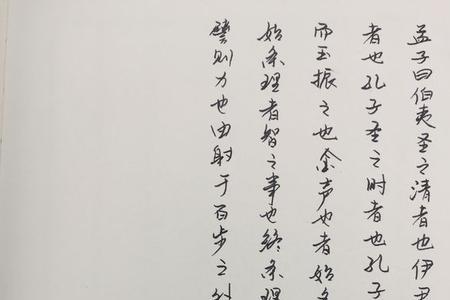 孟子曰伯夷圣之清者也伊尹
者也孔子圣之时者也孔子
而玉振之也金声也者始
始条理者智之事也终条理
譬则力也由射于百步之外